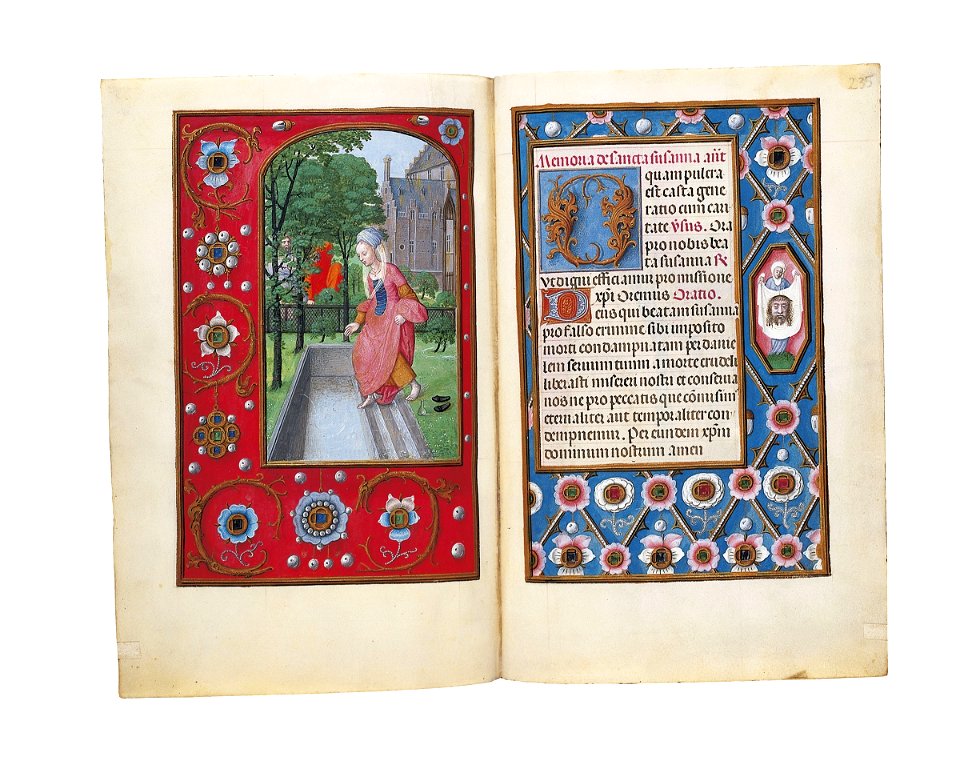 235
Memoria de sancta susanna ant
O quam pulcra
est casta gene
ratio cum cari
tate v̄sus. Ora
pro nobis bea
ta susanna R̄
Vt digni efficiamur promissione
xp̄i Oremus Oratio.
Deus qui beatam susanna
pro falso crimine sibi imposito
morti condampnatam per danie
lem seruum tuum a morte crudeli
liberasti miserere nostri et conserua
nos ne pro peccatis que cōmisim⁹
eternaliter aut temporaliter con
dempnemur. Per eundem xp̄m
dominum nostrum amen